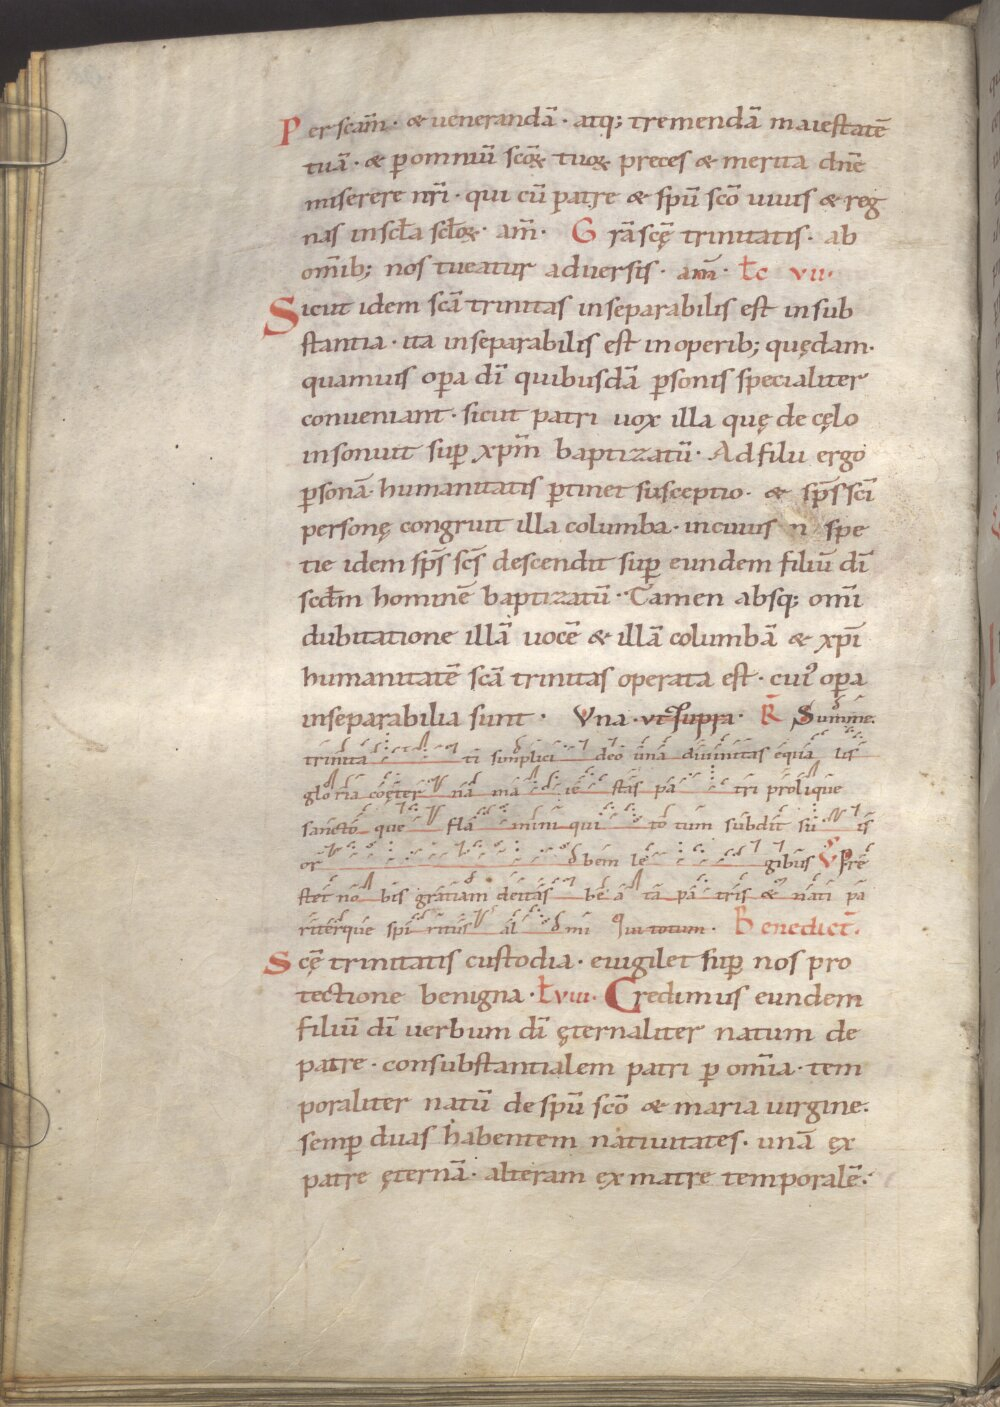 Per scām̄ · & uenerandā · atq; tremendā maiestatē
tuā · & p omniū scōꝝ tuoꝝ preces & merita dn̄e
miserere nr̄i · qui cū patre & spū scō uiuis & reg
nas in scl̄a scl̄oꝝ · am̄ · Grā scę̄ trinitatis · ab
om̄ib; nos tueatur adversis · am̄ · Lc̄ vii·
Sicut idem scā trinitas inseparabilis est in sub
stantia · ita inseparabilis est in operib; quędam·
quamuis opa dī quibusdā psonis specialiter
conveniant · sicut patri uox illa quę de cęlo
insonuit sup xp̄m baptizatū · Ad filii ergo
psonā · humanitatis ptinet susceptio · & sps̄ scī
personę congruit illa columba · in cuius n spe
tie idem sps̄ scs̄ descendit sup eundem filiū dī
scdm̄ hominē baptizatū · Tamen absq; om̄i
dubitatione illā uocē & illā columbā & xp̄i
humanitatē scā trinitas operata est · cui' opa
inseparabilia sunt · Vna · ut supra · R̄ Summe
trinita ti simplici deo una diuinitas equa lis
gloria coęter na ma ie stas pa tri prolique
sancto que fla mini qui to tum subdit su is
or bem le gibus V̄ Pre
stet no bis gratiam deitas be a ta pa tris & nati pa
riterque spi ritus al mi Qui totum · Benedict̄·
Scę̄ trinitatis custodia · euigilet sup nos pro
tectione benigna · L̄ viii· Credimus eundem
filiū dī uerbum dī ęternaliter natum de
patre · consubstantialem patri p om̄ia · tem
poraliter natū de spū scō & maria uirgine·
semp duas habentem natiuitates · unā ex
patre ęternā · alteram ex matre temporalē·